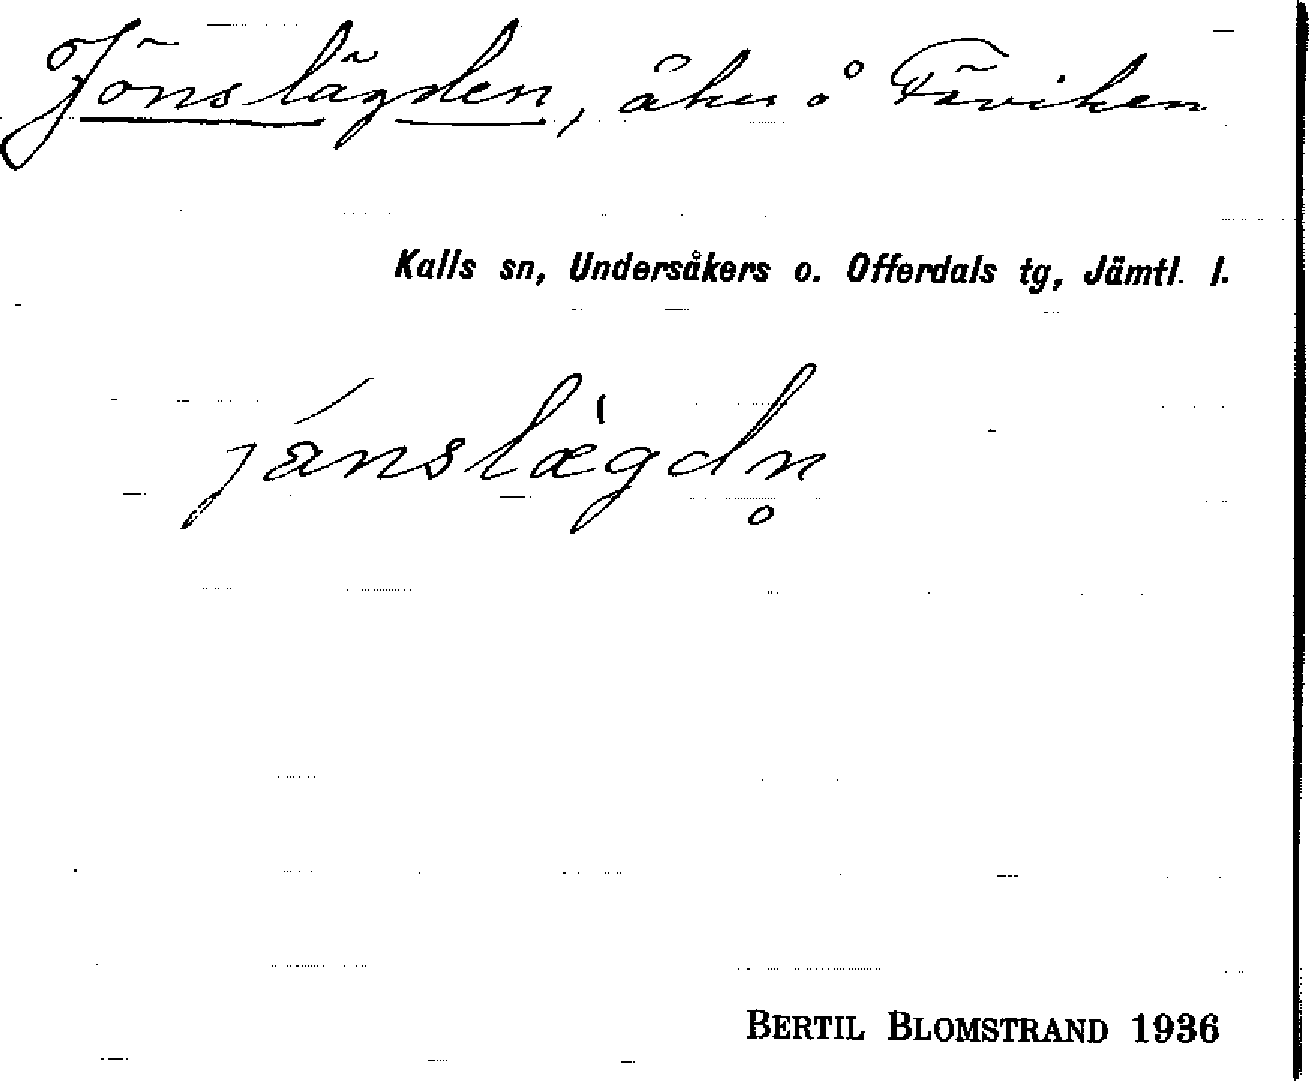 Jönslägden, åker å Fäviken
Kalls sn, Undersåkers o. Offerdals tg, Jämtl. l.
jánslæ̍gdn̥
BERTIL BLOMSTRAND 1936